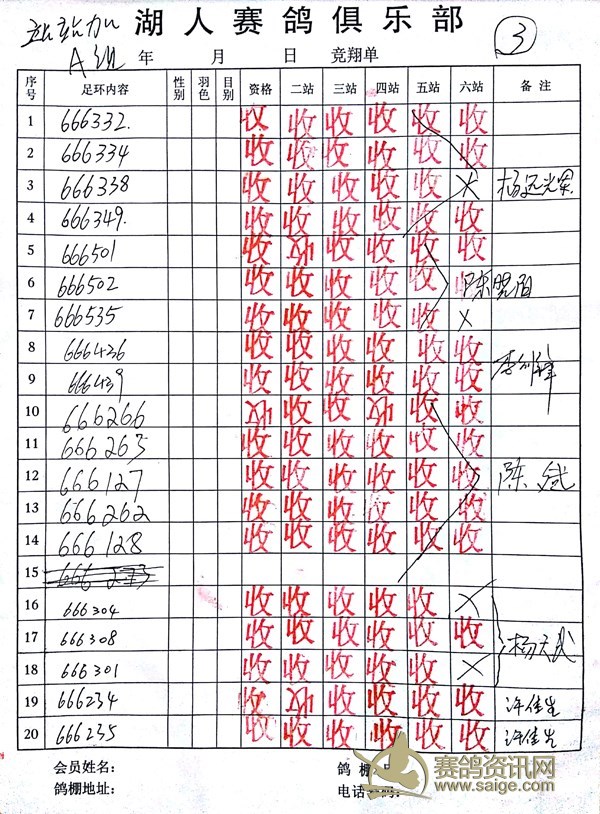 站站加 湖人赛鸽俱乐部 ③
A组 年 月 日 竞翔单
序号 足环内容 性别 羽色 目别 资格 二站 三站 四站 五站 六站 备注
1 666332. 收 收 收 收 收 收
2 666334 收 收 收 收 收 收
3 666338 收 收 收 收 收 × 杨远光荣
4 666349. 收 收 收 收 收 收
5 666501 收 收 收 收 收 收
6 666502 收 收 收 收 收 收 陈晓阳
7 666535 收 收 收 收 收 ×
8 666426 收 收 收 收 收 收
9 666439 收 收 收 收 收 收
10 666266 收 收 收 收 收 收
11 666263 收 收 收 收 收 收
12 666127 收 收 收 收 收 收 陈斌
13 666262 收 收 收 收 收 收
14 666128 收 收 收 收 收 收
15
16 666304 收 收 收 收 收 ×
17 666308 收 收 收 收 收 收 杨天成
18 666301 收 收 收 收 收 ×
19 666234 收 收 收 收 收 收 许佳生
20 666235 收 收 收 收 收 收 许佳生
会员姓名: 鸽棚
鸽棚地址: 电话
赛鸽资讯网
www.saige.com